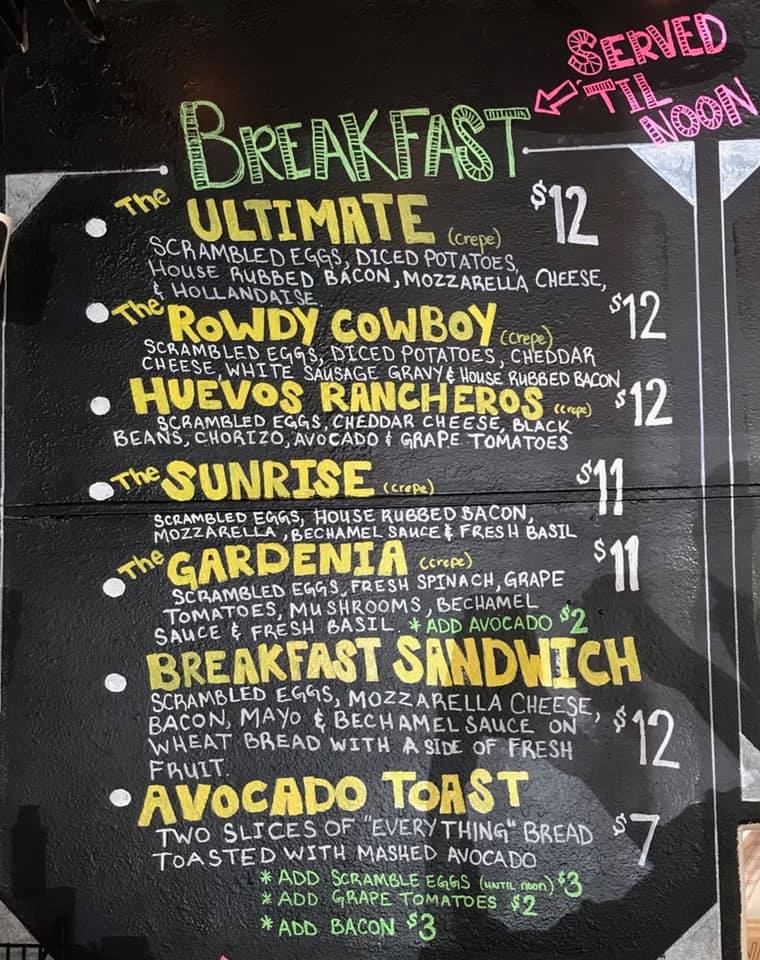 SERVED
'TIL
NOON
BREAKFAST
The ULTIMATE (crepe) $12
SCRAMBLED EGGS, DICED POTATOES,
HOUSE RUBBED BACON, MOZZARELLA CHEESE,
& HOLLANDAISE.
The ROWDY COWBOY (crepe) $12
SCRAMBLED EGGS, DICED POTATOES, CHEDDAR
CHEESE, WHITE SAUSAGE GRAVY & HOUSE RUBBED BACON
HUEVOS RANCHEROS (crepe) $12
SCRAMBLED EGGS, CHEDDAR CHEESE, BLACK
BEANS, CHORIZO, AVOCADO & GRAPE TOMATOES
The SUNRISE (crepe) $11
SCRAMBLED EGGS, HOUSE RUBBED BACON,
MOZZARELLA, BECHAMEL SAUCE & FRESH BASIL
The GARDENIA (crepe) $11
SCRAMBLED EGGS, FRESH SPINACH, GRAPE
TOMATOES, MUSHROOMS, BECHAMEL
SAUCE & FRESH BASIL. * ADD AVOCADO $2
BREAKFAST SANDWICH
SCRAMBLED EGGS, MOZZARELLA CHEESE,
BACON, MAYO & BECHAMEL SAUCE ON $12
WHEAT BREAD WITH A SIDE OF FRESH
FRUIT.
AVOCADO TOAST
TWO SLICES OF "EVERYTHING" BREAD $7
TOASTED WITH MASHED AVOCADO
* ADD SCRAMBLE EGGS (UNTIL noon) $3
* ADD GRAPE TOMATOES $2
* ADD BACON $3